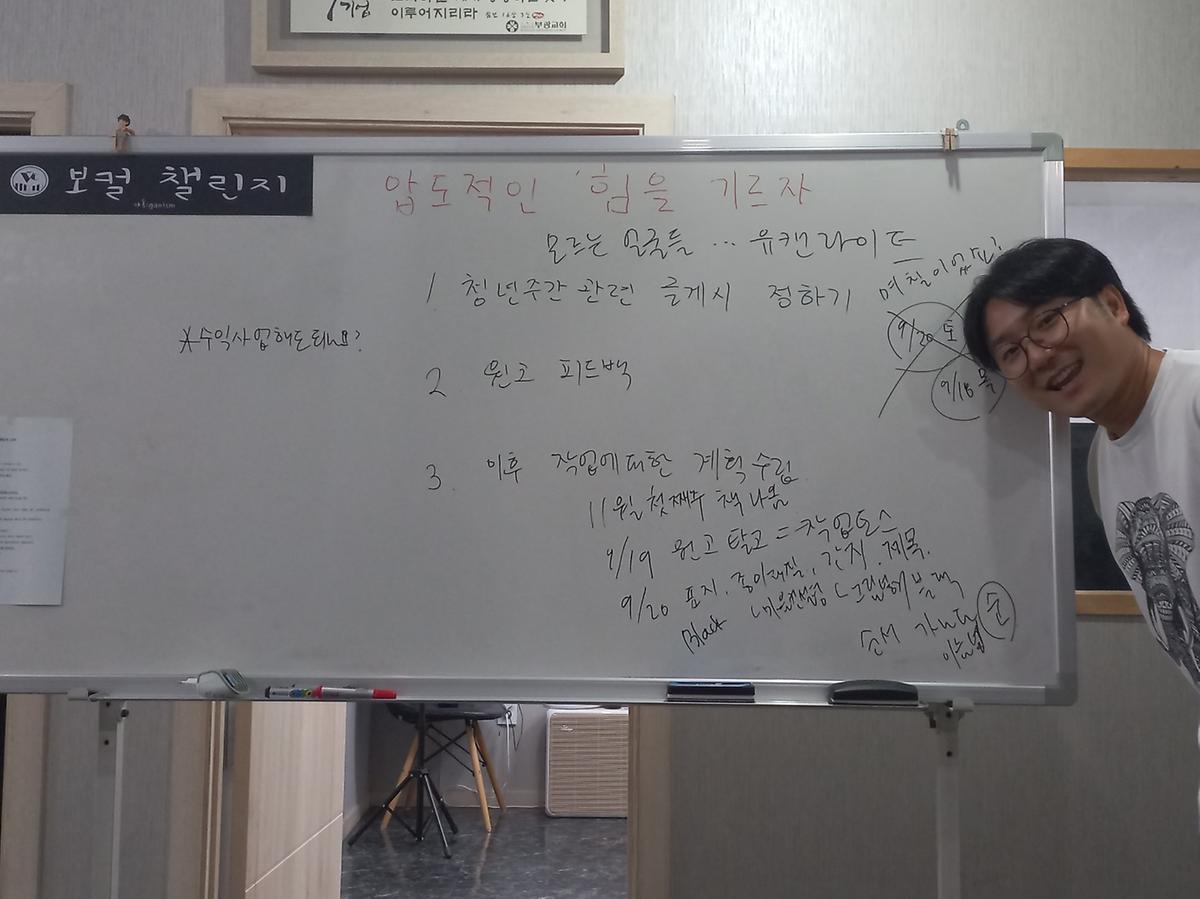 이루어지리라
부광교회
보컬 챌린지
압도적인 힘을 기르자
모르는 얼굴들 ... 유캔라이트
1 청년주간 관련 글게시 정하기
며칠이 없다!
9/20 토
9/18 목
*수익사업해도되나요?
2 원고 피드백
3. 이후 작업에대한 계획수립
11월 첫째주 책나옴
9/19 원고 탈고 = 작업도스
9/20 표지, 종이재질, 간지, 제목.
Black
순서 가나다 순
이름별